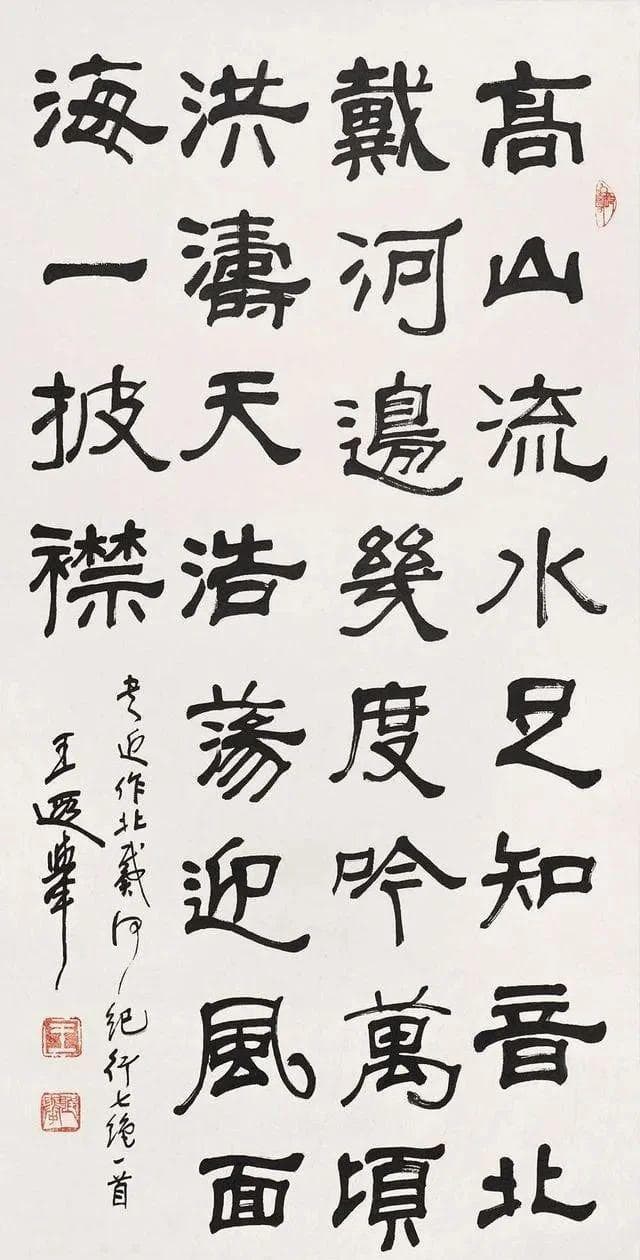 高山流水足知音北
戴河邊幾度吟萬頃
洪濤天浩蕩迎風面
海一披襟
書近作北戴河紀行七絕一首
王遐舉